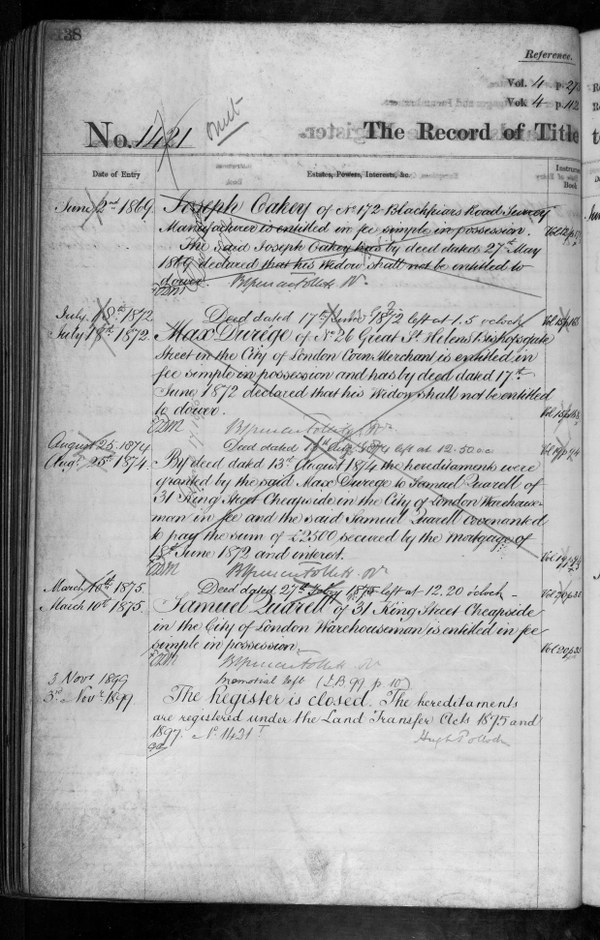 138
Reference.
Vol. 4 p. 27
Vol. 4 p. 112
No. 1421
The Record of Title
Date of Entry
Estates, Powers, Interests, &c.
Book
June 2nd 1869
Joseph Oakey of No 172 Blackfriars Road Surrey
Manufacturer is entitled in fee simple in possession.
The said Joseph Oakey has by deed dated 27th May
1869 declared that his Widow shall not be entitled to
dower.
July 18th 1872.
Deed dated 17th June 1872 left at 1.5 o'clock
July 18th 1872.
Max Durége of No 26 Great St. Helens Bishopsgate
Street in the City of London Corn Merchant is entitled in
fee simple in possession and has by deed dated 17th
June 1872 declared that his Widow shall not be entitled
to dower.
August 25. 1874
Deed dated 13th Augt 1874 left at 12.50
Augt 25th 1874.
By deed dated 13th August 1874 the hereditaments were
granted by the said Max Durége to Samuel Quarell of
31 King Street Cheapside in the City of London Warehouse-
man in fee and the said Samuel Quarell covenanted
to pay the sum of £2500 secured by the mortgage of
18th June 1872 and interest.
March 10th 1875.
Deed dated 27th Feby 1875 left at 12.20 o'clock
March 10th 1875.
Samuel Quarell of 31 King Street Cheapside
in the City of London Warehouseman is entitled in fee
simple in possession.
3 Novr 1899
Memorial left (I.B. 99 p 10)
3rd Novr 1899
The Register is closed. The hereditaments
are registered under the Land Transfer Acts 1875 and
1897. No 11431
Hugh Pollock